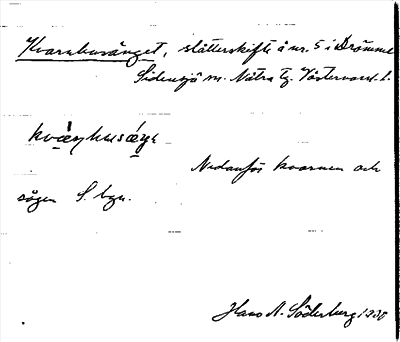 Kvarnhusänget, slåtterskifte å nr. 5 i Drömme
Sidensjö sn. Nätra tg. Västernorrl. l.
Nedanför kvarnen och
sågen S. byn.
Hans A. Söderberg 1930